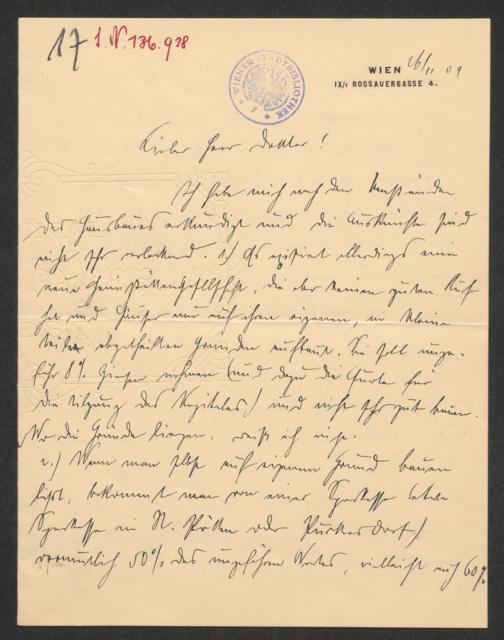 17 I. N. 136.938
WIENER STADTBIBLIOTHEK
WIEN 26/11 09
IX/1 ROSSAUERGASSE 4.
Lieber Herr Doktor!
Ich habe mich nach den Umständen
des Hausbaues erkundigt und die Auskünfte sind
nicht sehr verlockend. 1.) Es existiert allerdings eine
neue Heimstättengesellschaft, die aber keinen guten Ruf
hat und Häuser nur auf ihren eigenen, in kleine
Teile abgetheilten Gründen aufbaut. Sie soll unge-
fähr 8% Zinsen nehmen (und dazu die Quote für
die Tilgung des Kapitales) und nicht sehr gut bauen.
Wo die Gründe liegen, weiß ich nicht.
2.) Wenn man selbst auf eigenem Grund bauen
läßt, bekommt man von einer Sparkasse
Sparkasse in St. Pölten oder Purkersdorf)
vermutlich 50% des ungefähren Wertes, vielleicht auch 60%